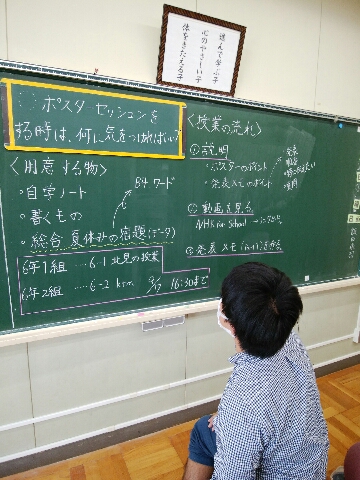 進んで学ぶ子
心のやさしい子
体をきたえる子
ポスターセッションを
する時は、何に気をつければいい?
<用意する物>
・自学ノート
・書くもの
・総合 夏休みの宿題(データ)
B4 ワード
6年1組 ……6-1 北見の授業
6年2組 ……6-2 ktm 9/7 16:30まで
<授業の流れ>
① 説明
・ポスターのポイント
・発表メモのポイント
② 動画を見る
NHK for School
③ 発表メモ